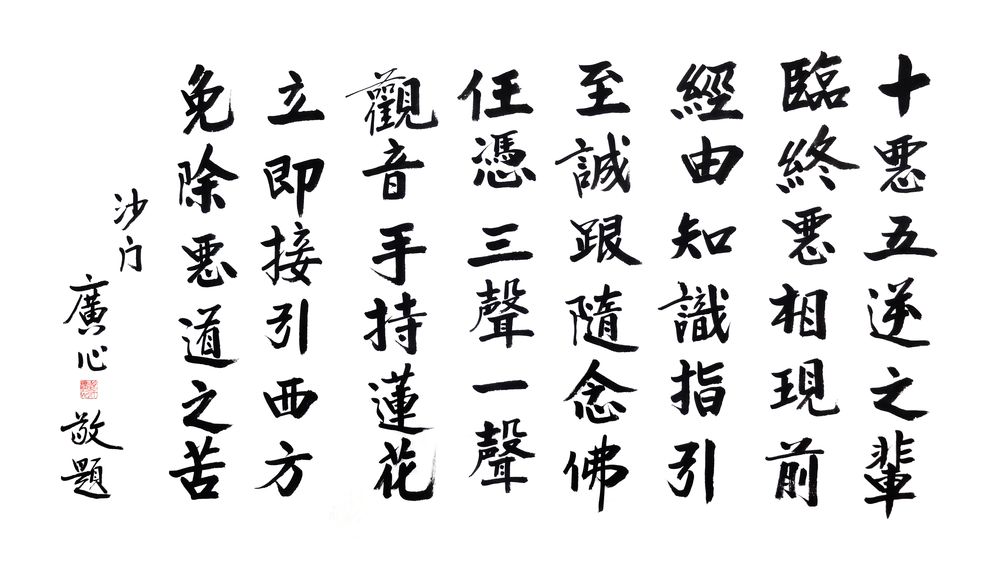 十惡五逆之輩
臨終惡相現前
經由知識指引
至誠跟隨念佛
任憑三聲一聲
觀音手持蓮花
立即接引西方
免除惡道之苦
沙门
廣心
敬題